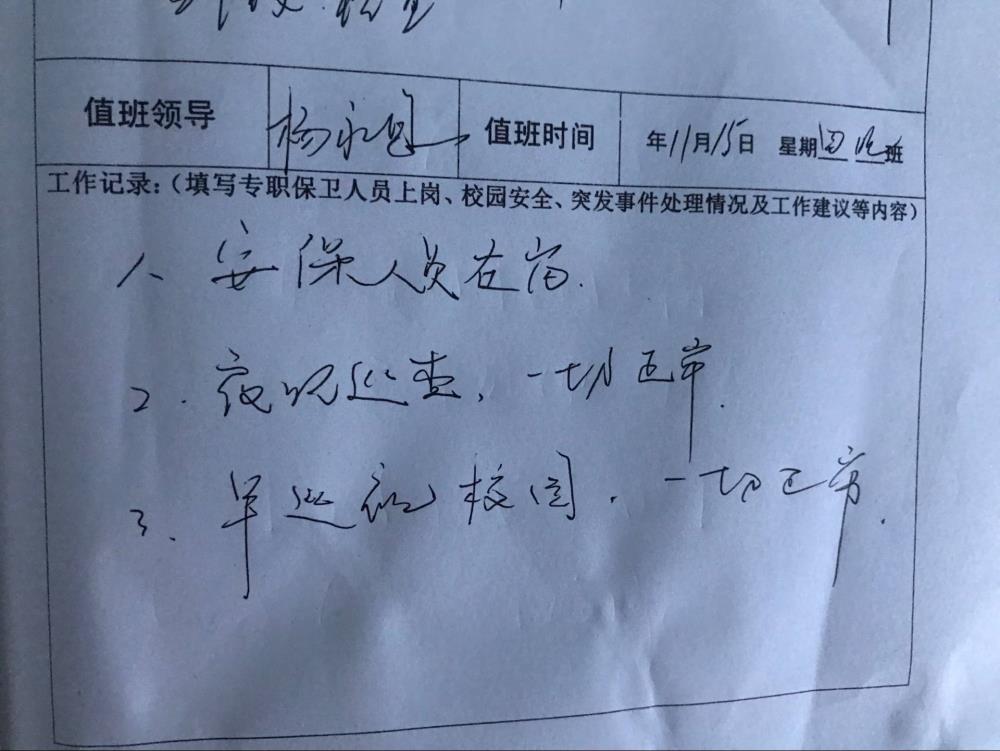 值班领导 杨永 值班时间 年11月15日 星期四 晚班
工作记录：（填写专职保卫人员上岗、校园安全、突发事件处理情况及工作建议等内容）
1、安保人员在岗.
2. 夜晚巡查，一切正常.
3. 早巡视校园，一切正常.